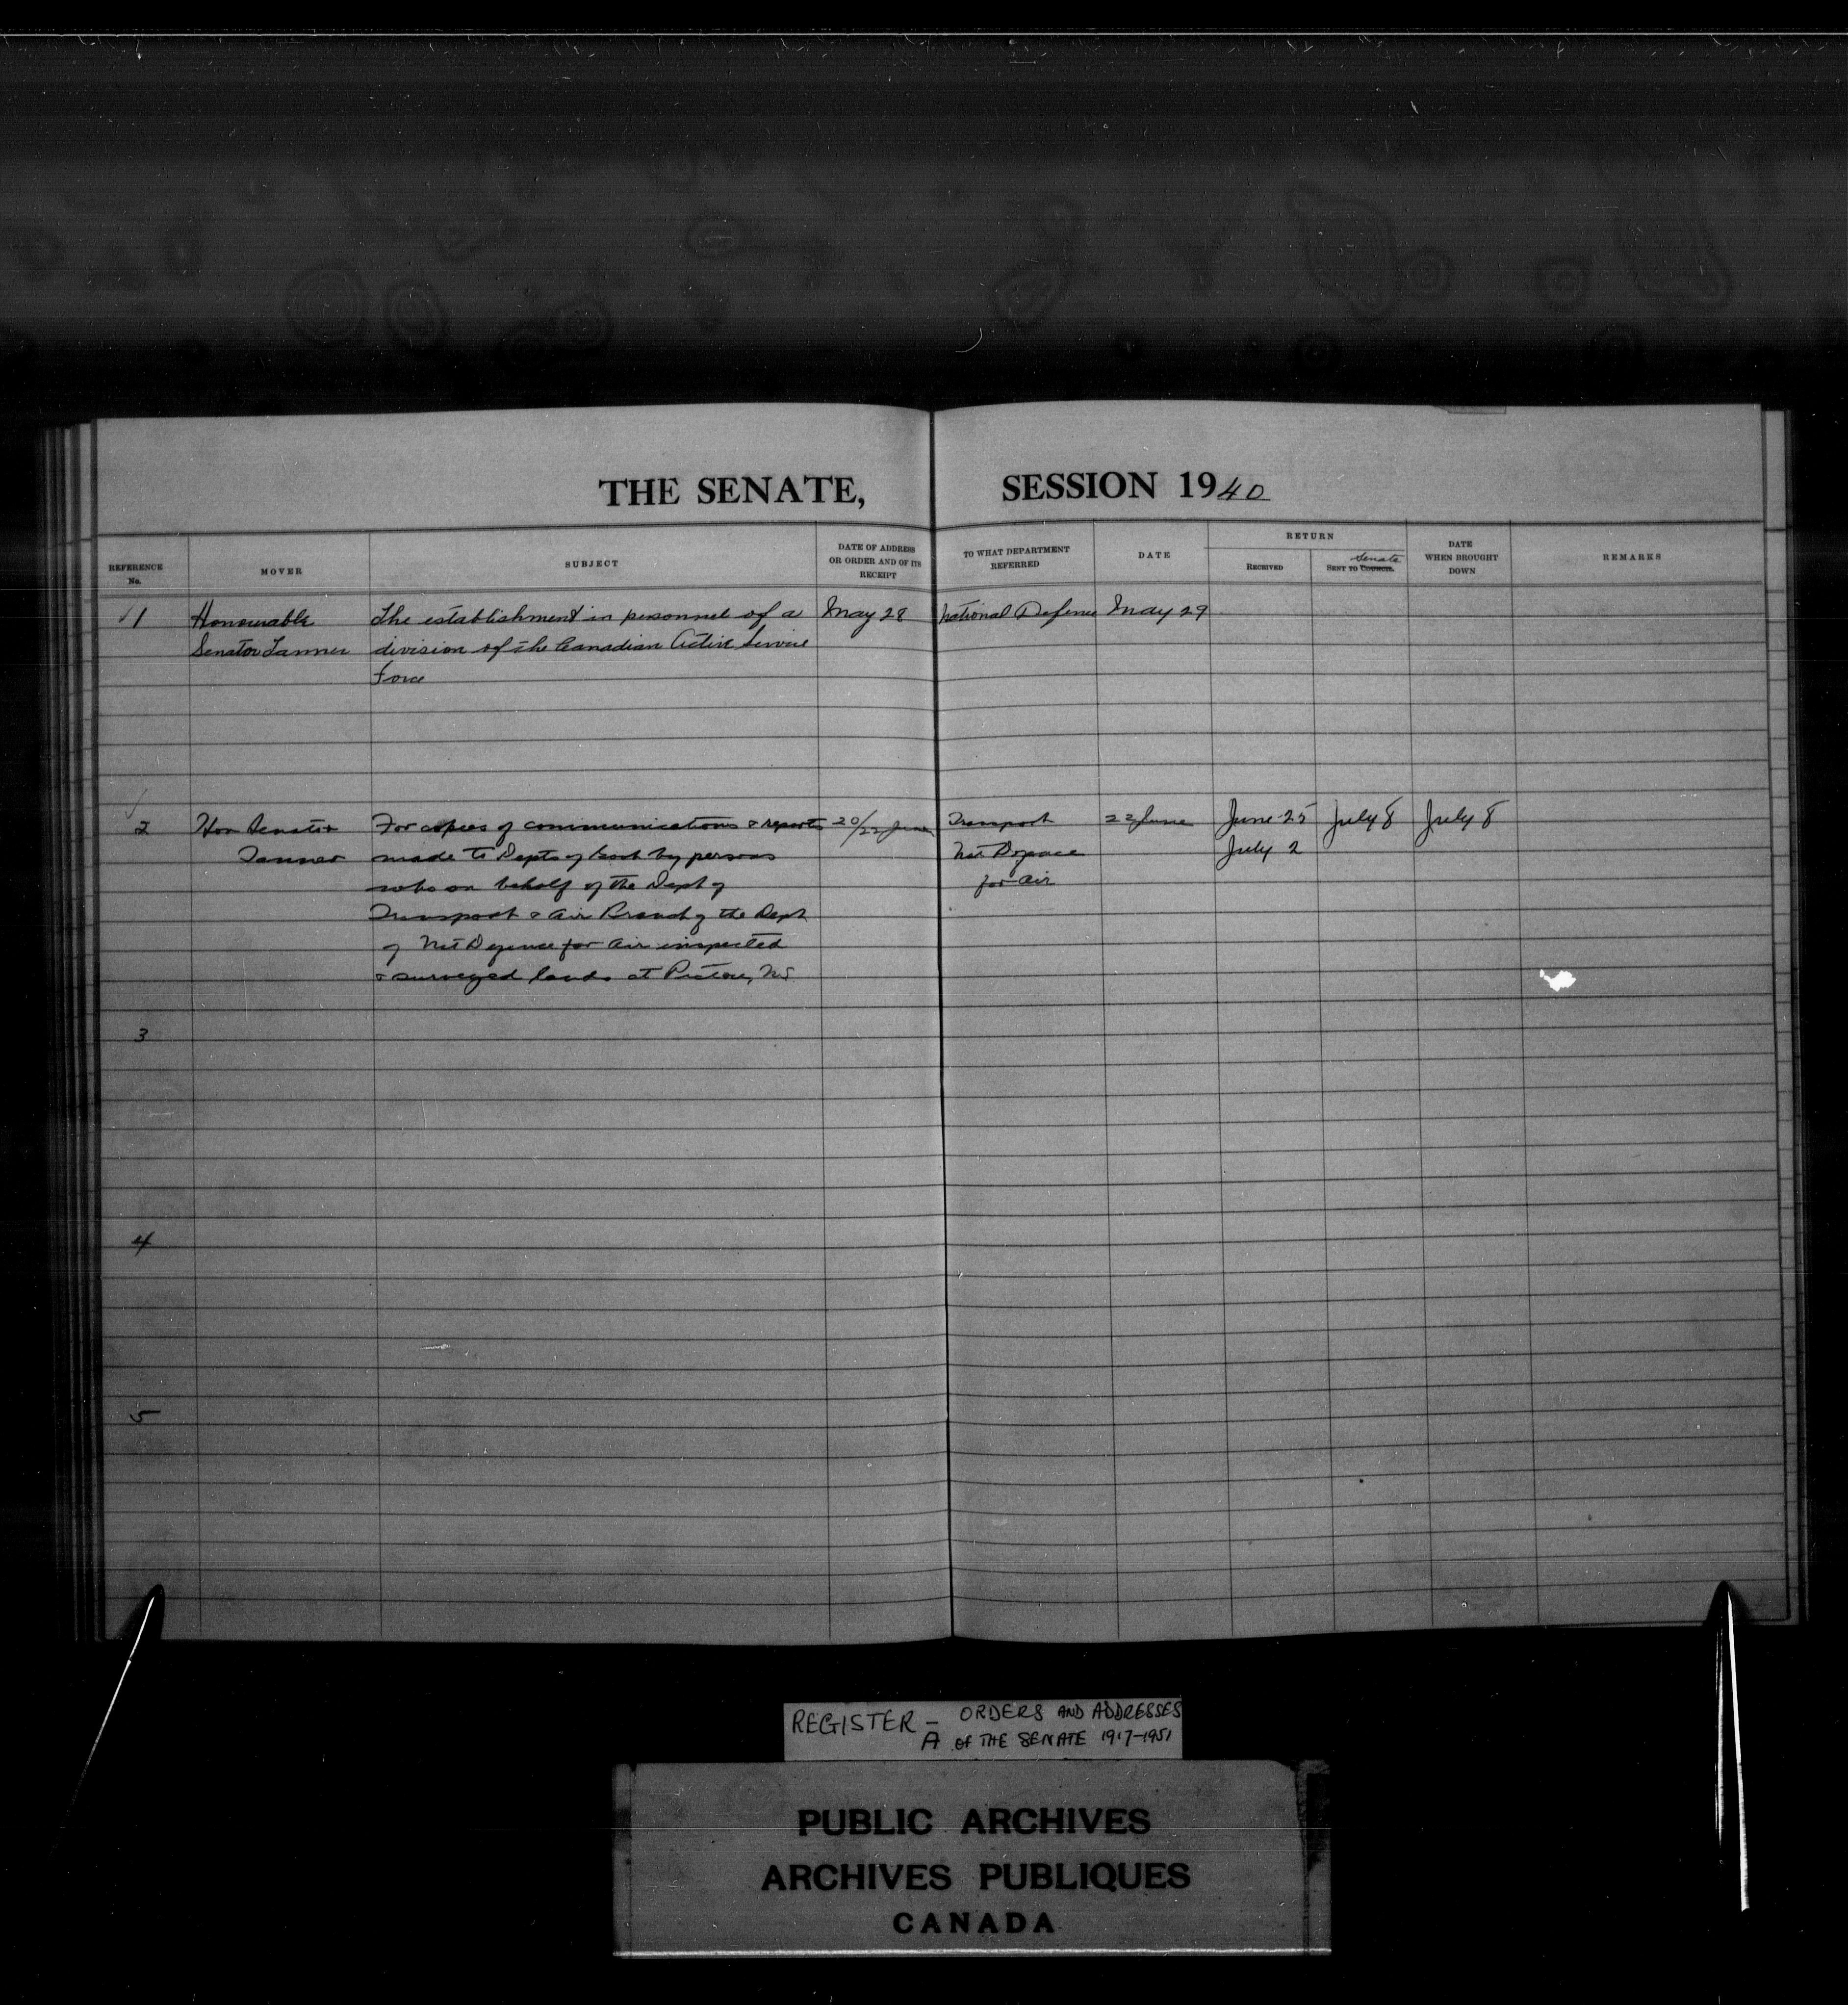 THE SENATE, SESSION 1940
REFERENCE No.
MOVER
SUBJECT
DATE OF ADDRESS OR ORDER AND OF ITS RECEIPT
TO WHAT DEPARTMENT REFERRED
DATE
RETURN
RECEIVED
SENT TO COUNCIL Senate
DATE WHEN BROUGHT DOWN
REMARKS
1 Honourable The establishment in personnel of a May 28 National Defence May 29
Senator Tanner division of the Canadian Active Service
Force
2 Hon Senator For copies of communications & reports 20/22 June Transport 22 June June 25 July 8 July 8
Tanner made to Depts of Govt by persons Nat Defence July 2
who on behalf of the Dept of for Air
Transport & Air Branch of the Dept
of Nat Defence for Air inspected
& surveyed lands at Pictou, NS
3
4
5
REGISTER – ORDERS AND ADDRESSES
A OF THE SENATE 1917-1951
PUBLIC ARCHIVES
ARCHIVES PUBLIQUES
CANADA